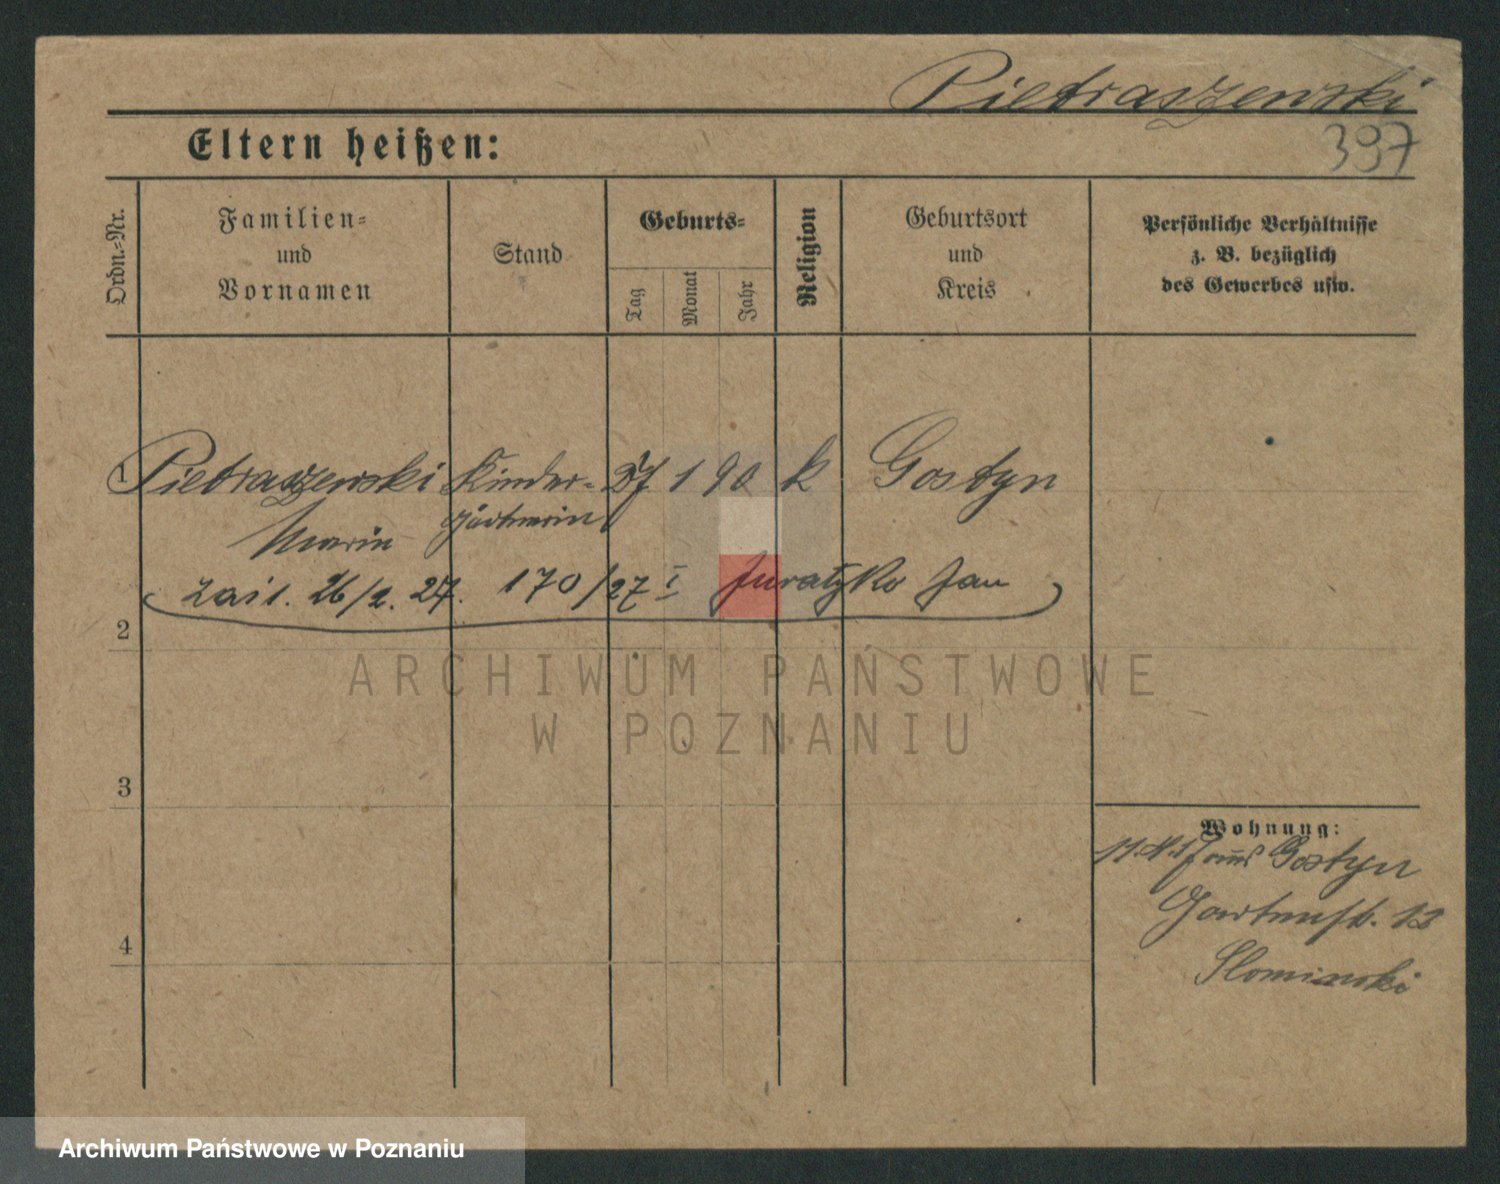 Pietraszewski
Eltern heißen:
397
Ordn.-Nr.
Familien-
und
Vornamen
Stand
Geburts-
Tag
Monat
Jahr
Religion
Geburtsort
und
Kreis
Persönliche Verhältnisse
z. B. bezüglich
des Gewerbes usw.
1 Pietraszewski Kinder- 27 1 90 k Gostyn
Maria gärtnerin
26/2. 27. 170/27 I Juratzko Jan
2
ARCHIWUM PAŃSTWOWE
W POZNANIU
3
Wohnung:
Gostyn
Gartenstr. 12
Slominski
4
Archiwum Państwowe w Poznaniu